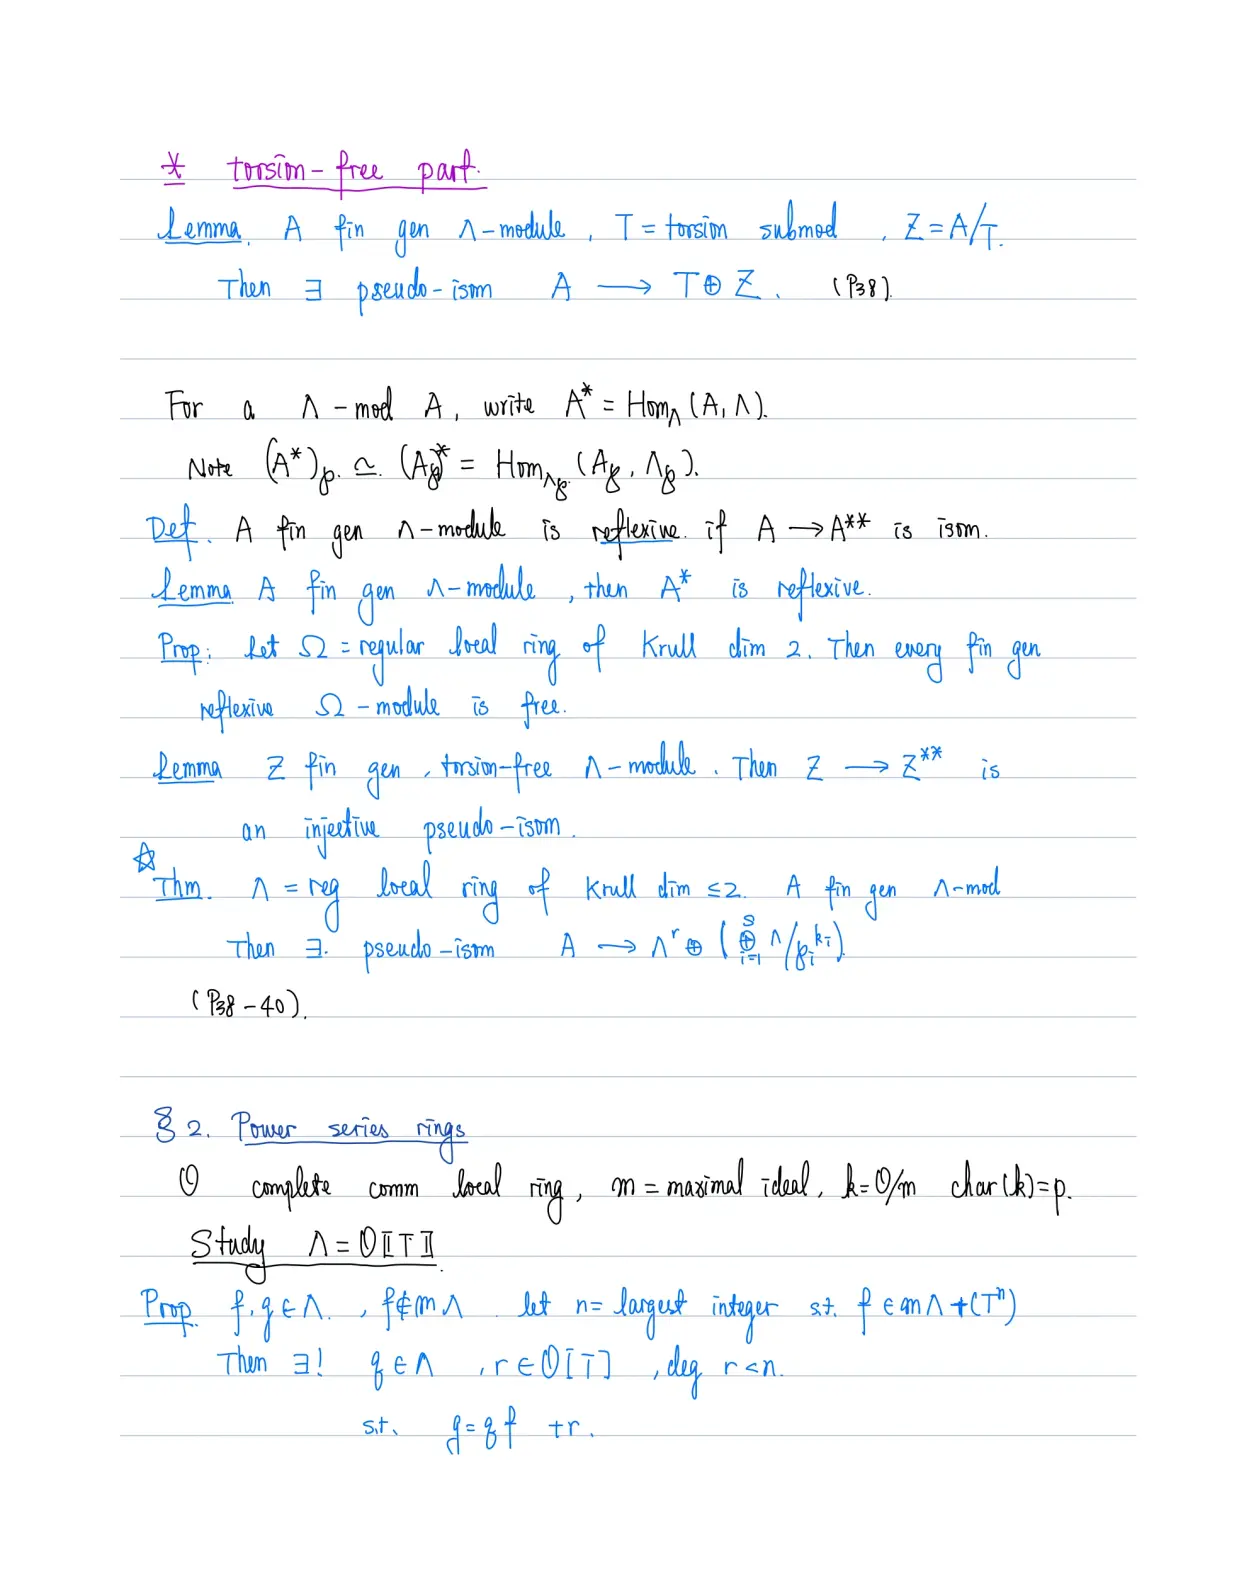 * torsion-free part.
Lemma. A fin gen Λ-module, T = torsion submod, Z = A/T.
Then ∃ pseudo-isom A ⟶ T ⊕ Z. (P38).
For a Λ-mod A, write A* = Hom_Λ (A, Λ).
Note (A*)_℘ ≃ (A_℘)* = Hom_{Λ_℘} (A_℘, Λ_℘).
Def. A fin gen Λ-module is reflexive if A ⟶ A** is isom.
Lemma A fin gen Λ-module, then A* is reflexive.
Prop: Let Ω = regular local ring of Krull dim 2. Then every fin gen
reflexive Ω-module is free.
Lemma Z fin gen, torsion-free Λ-module. Then Z ⟶ Z** is
an injective pseudo-isom.
☆
Thm. Λ = reg local ring of Krull dim ≤2. A fin gen Λ-mod
Then ∃. pseudo-isom A ⟶ Λ^r ⊕ (⊕_{i=1}^{s} Λ/℘_i^{k_i})
(P38-40).
§2. Power series rings
O complete comm local ring, m = maximal ideal, k = O/m char(k)=p.
Study Λ = O⟦T⟧.
Prop. f, g ∈ Λ., f ∉ mΛ. let n = largest integer s.t. f ∈ mΛ + (T^n)
Then ∃! q ∈ Λ, r ∈ O[T], deg r < n.
s.t. g = qf + r.